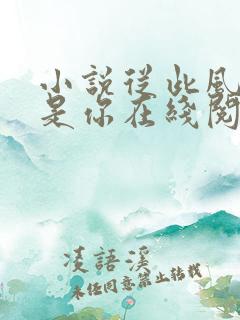 小說從此風
是你在綫閱
凌語溪
未經同意禁止轉載